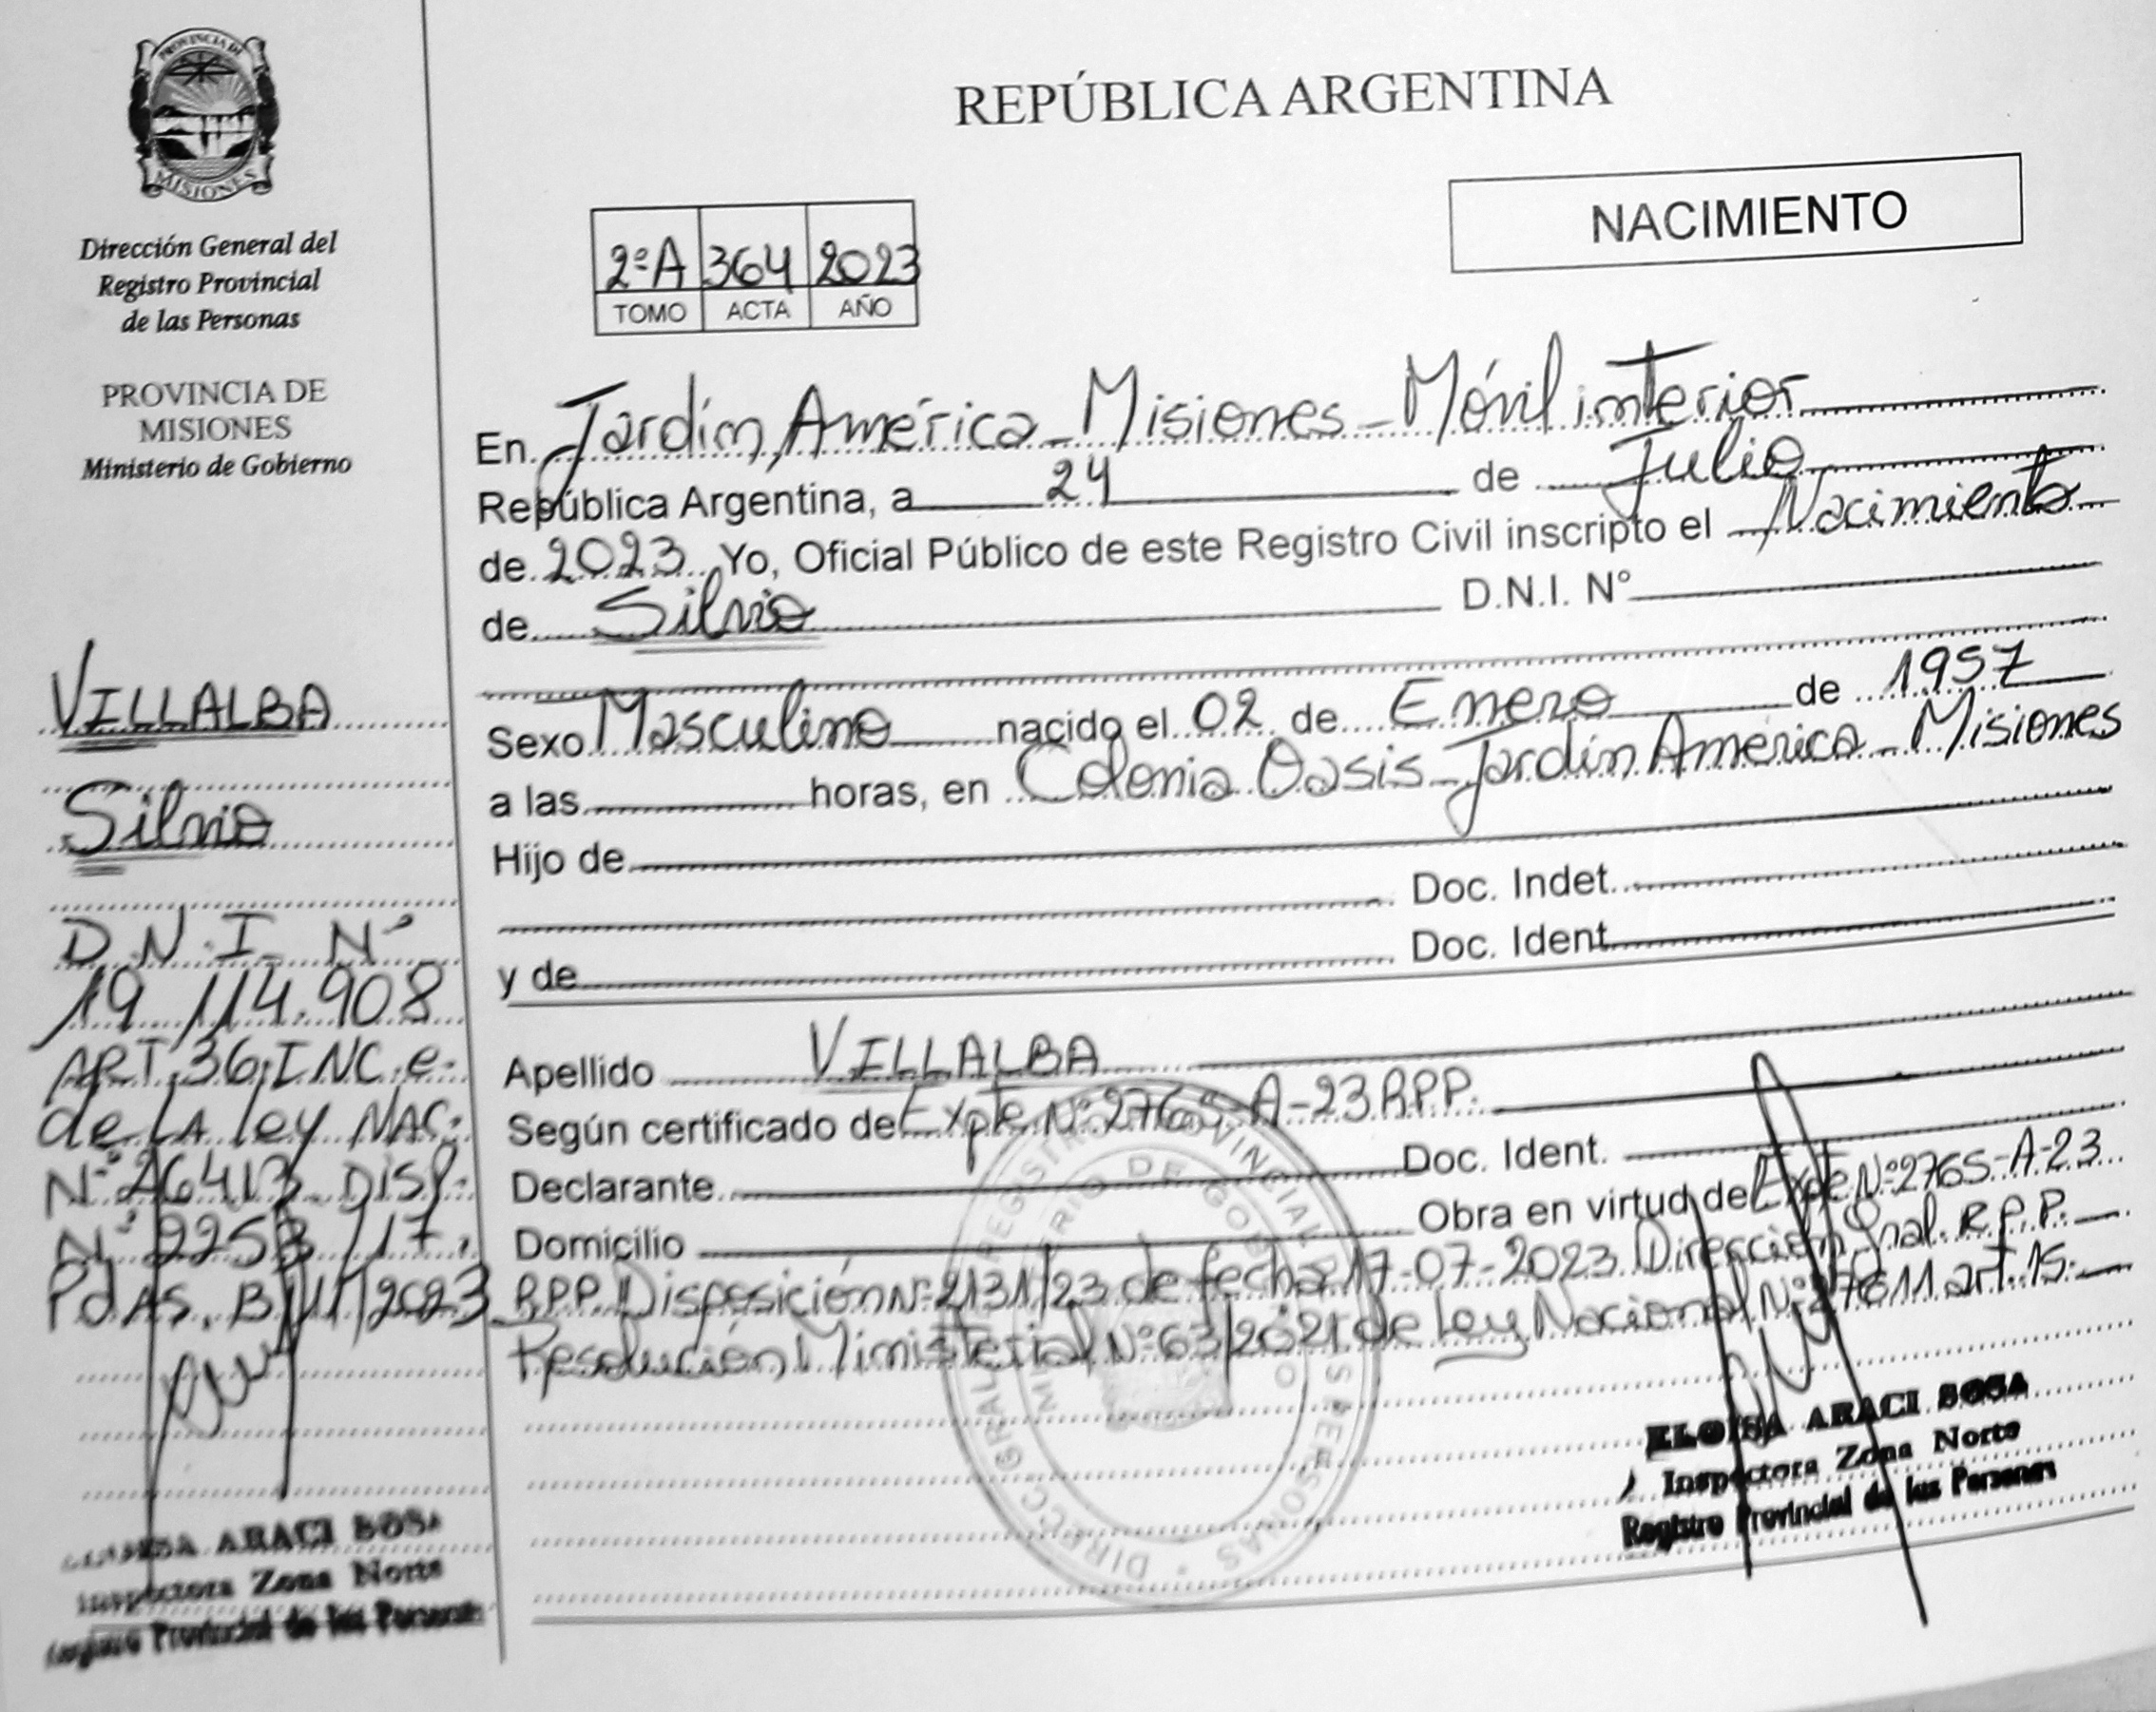 PROVINCIA DE
MISIONES
Dirección General del
Registro Provincial
de las Personas
PROVINCIA DE
MISIONES
Ministerio de Gobierno
VILLALBA
Silvio
D.N.I. Nº
19.114.908
ART.36.INC.e.
de LA ley NAC.
Nº 26413. DISP.
Nº 2253/17.
PdAS. B/1/2023
ARACI SOSA
Inspectora Zona Norte
Registro Provincial de las Personas
REPÚBLICA ARGENTINA
NACIMIENTO
2ºA 364 2023
TOMO ACTA AÑO
En Jardín América - Misiones - Móvil interior
República Argentina, a 24 de Julio
de 2023 Yo, Oficial Público de este Registro Civil inscripto el Nacimiento
de Silvio D.N.I. N°
Sexo Masculino nacido el 02 de Enero de 1957
a las horas, en Colonia Oasis - Jardín América - Misiones
Hijo de
Doc. Indet.
y de Doc. Ident.
Apellido VILLALBA
Según certificado de Expte Nº 2765-A-23 RPP.
Declarante Doc. Ident.
Domicilio Obra en virtud de Expte Nº 2765-A-23
RPP. Disposición Nº 2131/23 de fecha 17-07-2023 Dirección Gral. R.P.P.
Resolución Ministerial Nº 63/2021 de Ley Nacional Nº 27611 art. 15.
DIRECC GRAL REGISTRO PROVINCIAL DE LAS PERSONAS
MINISTERIO DE GOBIERNO
ELOISA ARACI SOSA
Inspectora Zona Norte
Registro Provincial de las Personas